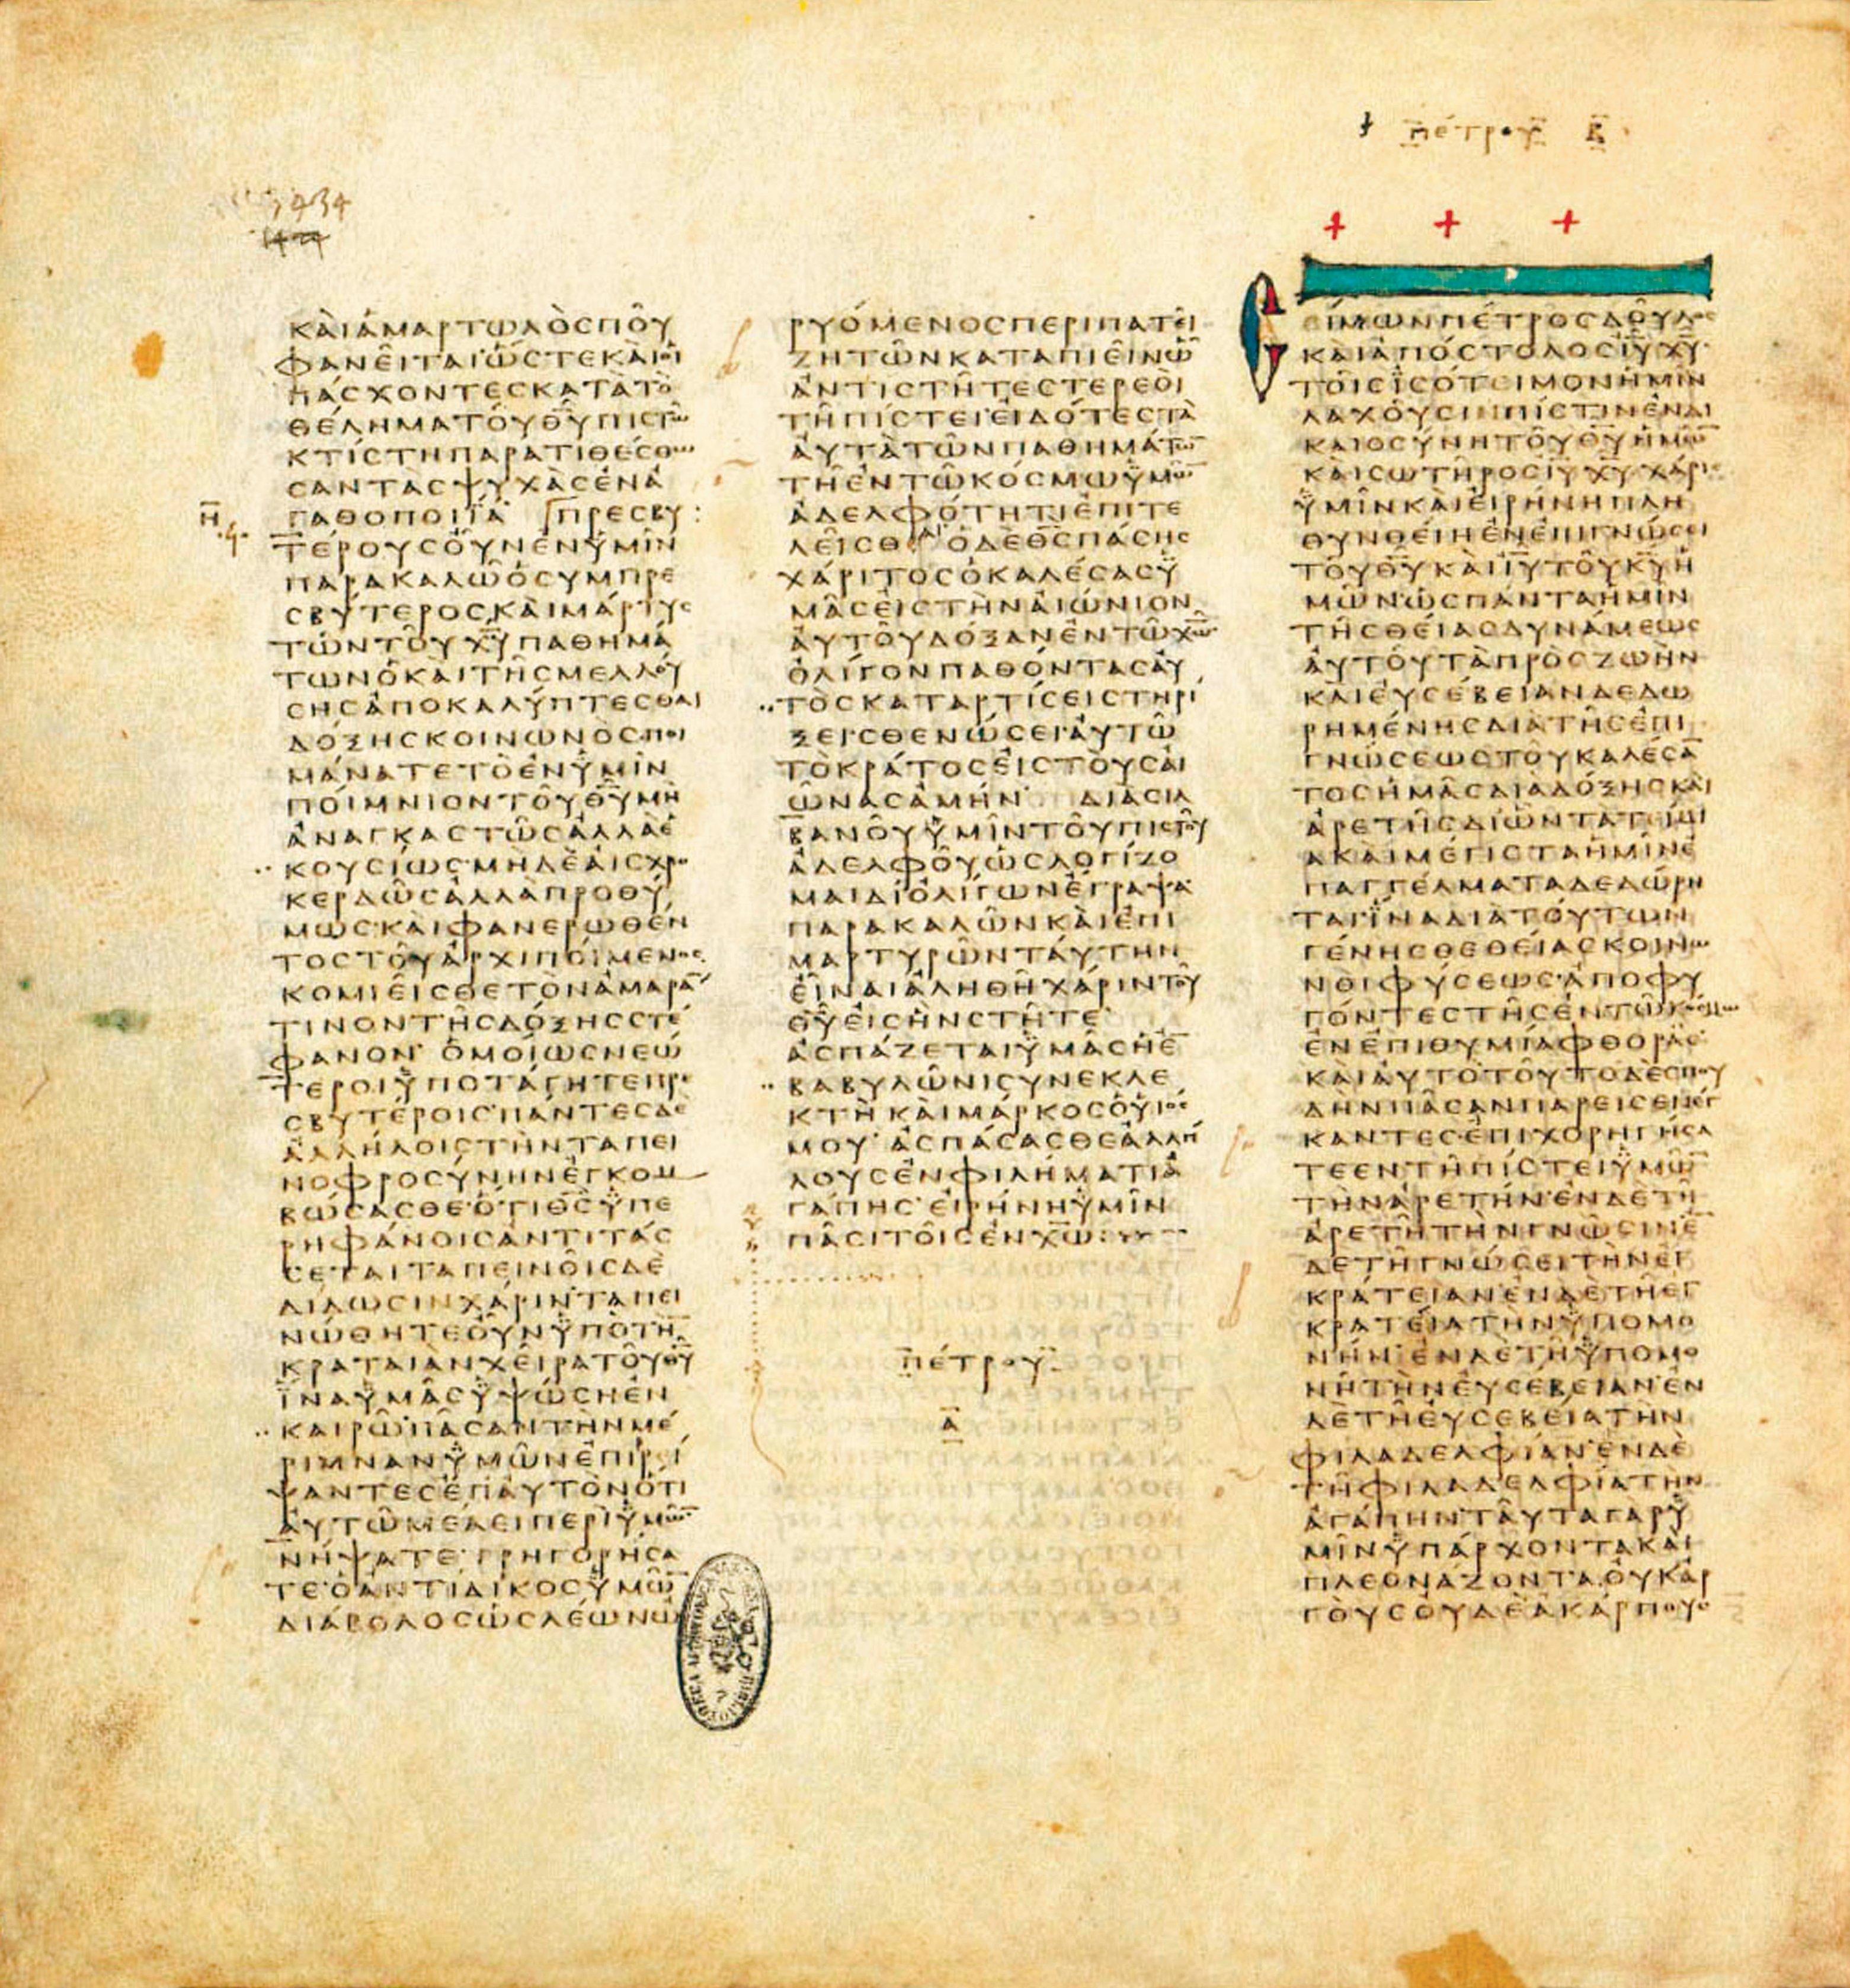 πέτρου β
1434
ΚΑΙΑΜΑΡΤΩΛΟΣΠΟΥ
ΦΑΝΕΙΤΑΙΩΣΤΕΚΑΙΟΙ
ΠΑΣΧΟΝΤΕΣΚΑΤΑΤΟ
ΘΕΛΗΜΑΤΟΥΘ̅Υ̅ΠΙΣΤΩ
ΚΤΙΣΤΗΠΑΡΑΤΙΘΕΣΘΩ
ΣΑΝΤΑΣΨΥΧΑΣΕΝΑ
ΓΑΘΟΠΟΙΙΑ ΠΡΕΣΒΥ
ΤΕΡΟΥΣΟΥΝΕΝΥΜΙΝ
ΠΑΡΑΚΑΛΩΟΣΥΜΠΡΕ
ΣΒΥΤΕΡΟΣΚΑΙΜΑΡΤΥΣ
ΤΩΝΤΟΥΧ̅Υ̅ΠΑΘΗΜΑ
ΤΩΝΟΚΑΙΤΗΣΜΕΛΛΟΥ
ΣΗΣΑΠΟΚΑΛΥΠΤΕΣΘΑΙ
ΔΟΞΗΣΚΟΙΝΩΝΟΣΠΟΙ
ΜΑΝΑΤΕΤΟΕΝΥΜΙΝ
ΠΟΙΜΝΙΟΝΤΟΥΘ̅Υ̅ΜΗ
ΑΝΑΓΚΑΣΤΩΣΑΛΛΑΕ
ΚΟΥΣΙΩΣΜΗΔΕΑΙΣΧΡΟ
ΚΕΡΔΩΣΑΛΛΑΠΡΟΘΥ
ΜΩΣΚΑΙΦΑΝΕΡΩΘΕΝ
ΤΟΣΤΟΥΑΡΧΙΠΟΙΜΕΝΟΣ
ΚΟΜΙΕΙΣΘΕΤΟΝΑΜΑΡΑ
ΤΙΝΟΝΤΗΣΔΟΞΗΣΣΤΕ
ΦΑΝΟΝ ΟΜΟΙΩΣΝΕΩ
ΤΕΡΟΙΥΠΟΤΑΓΗΤΕΠΡΕ
ΣΒΥΤΕΡΟΙΣΠΑΝΤΕΣΔΕ
ΑΛΛΗΛΟΙΣΤΗΝΤΑΠΕΙ
ΝΟΦΡΟΣΥΝΗΝΕΓΚΟΜ
ΒΩΣΑΣΘΕΟΤΙΘ̅Σ̅ΥΠΕ
ΡΗΦΑΝΟΙΣΑΝΤΙΤΑΣ
ΣΕΤΑΙΤΑΠΕΙΝΟΙΣΔΕ
ΔΙΔΩΣΙΝΧΑΡΙΝΤΑΠΕΙ
ΝΩΘΗΤΕΟΥΝΥΠΟΤΗ̅
ΚΡΑΤΑΙΑΝΧΕΙΡΑΤΟΥΘ̅Υ̅
ΙΝΑΥΜΑΣΥΨΩΣΗΕΝ
ΚΑΙΡΩΠΑΣΑΝΤΗΝΜΕ
ΡΙΜΝΑΝΥΜΩΝΕΠΙΡΙ
ΨΑΝΤΕΣΕΠΑΥΤΟΝΟΤΙ
ΑΥΤΩΜΕΛΕΙΠΕΡΙΥΜΩ̅
ΝΗΨΑΤΕΓΡΗΓΟΡΗΣΑ
ΤΕΟΑΝΤΙΔΙΚΟΣΥΜΩ̅
ΔΙΑΒΟΛΟΣΩΣΛΕΩΝΩ
ΡΥΟΜΕΝΟΣΠΕΡΙΠΑΤΕΙ
ΖΗΤΩΝΚΑΤΑΠΙΕΙΝΩ̅
ΑΝΤΙΣΤΗΤΕΣΤΕΡΕΟΙ
ΤΗΠΙΣΤΕΙΕΙΔΟΤΕΣΤΑ
ΑΥΤΑΤΩΝΠΑΘΗΜΑΤΩ̅
ΤΗΕΝΤΩΚΟΣΜΩΥΜΩ̅
ΑΔΕΛΦΟΤΗΤΙΕΠΙΤΕ
ΛΕΙΣΘΑΙΟΔΕΘ̅Σ̅ΠΑΣΗΣ
ΧΑΡΙΤΟΣΟΚΑΛΕΣΑΣΥ
ΜΑΣΕΙΣΤΗΝΑΙΩΝΙΟΝ
ΑΥΤΟΥΔΟΞΑΝΕΝΤΩΧ̅Ω̅
ΟΛΙΓΟΝΠΑΘΟΝΤΑΣΑΥ
ΤΟΣΚΑΤΑΡΤΙΣΕΙΣΤΗΡΙ
ΞΕΙΣΘΕΝΩΣΕΙΑΥΤΩ
ΤΟΚΡΑΤΟΣΕΙΣΤΟΥΣΑΙ
ΩΝΑΣΑΜΗΝ ΔΙΑΣΙΛ
ΒΑΝΟΥΥΜΙΝΤΟΥΠΙΣΤΟΥ
ΑΔΕΛΦΟΥΩΣΛΟΓΙΖΟ
ΜΑΙΔΙΟΛΙΓΩΝΕΓΡΑΨΑ
ΠΑΡΑΚΑΛΩΝΚΑΙΕΠΙ
ΜΑΡΤΥΡΩΝΤΑΥΤΗΝ
ΕΙΝΑΙΑΛΗΘΗΧΑΡΙΝΤΟΥ
Θ̅Υ̅ΕΙΣΗΝΣΤΗΤΕ
ΑΣΠΑΖΕΤΑΙΥΜΑΣΗΕ̅
ΒΑΒΥΛΩΝΙΣΥΝΕΚΛΕ
ΚΤΗΚΑΙΜΑΡΚΟΣΟΥΙΟΣ
ΜΟΥ ΑΣΠΑΣΑΣΘΕΑΛΛΗ
ΛΟΥΣΕΝΦΙΛΗΜΑΤΙΑ
ΓΑΠΗΣ ΕΙΡΗΝΗΥΜΙΝ
ΠΑΣΙΤΟΙΣΕΝΧ̅Ω̅
πέτρου
α
ΣΙΜΩΝΠΕΤΡΟΣΔΟΥΛΟΣ
ΚΑΙΑΠΟΣΤΟΛΟΣΙ̅Υ̅Χ̅Υ̅
ΤΟΙΣΙΣΟΤΕΙΜΟΝΗΜΙΝ
ΛΑΧΟΥΣΙΝΠΙΣΤΙΝΕΝΔΙ
ΚΑΙΟΣΥΝΗΤΟΥΘ̅Υ̅ΗΜΩ̅
ΚΑΙΣΩΤΗΡΟΣΙ̅Υ̅Χ̅Υ̅ΧΑΡΙΣ
ΥΜΙΝΚΑΙΕΙΡΗΝΗΠΛΗ
ΘΥΝΘΕΙΗΕΝΕΠΙΓΝΩΣΕΙ
ΤΟΥΘ̅Υ̅ΚΑΙΙ̅Υ̅ΤΟΥΚ̅Υ̅Η
ΜΩΝΩΣΠΑΝΤΑΗΜΙΝ
ΤΗΣΘΕΙΑΣΔΥΝΑΜΕΩΣ
ΑΥΤΟΥΤΑΠΡΟΣΖΩΗΝ
ΚΑΙΕΥΣΕΒΕΙΑΝΔΕΔΩ
ΡΗΜΕΝΗΣΔΙΑΤΗΣΕΠΙ
ΓΝΩΣΕΩΣΤΟΥΚΑΛΕΣΑ̅
ΤΟΣΗΜΑΣΔΙΑΔΟΞΗΣΚΑΙ
ΑΡΕΤΗΣΔΙΩΝΤΑΤΕΙΜΙ
ΑΚΑΙΜΕΓΙΣΤΑΗΜΙΝΕ
ΠΑΓΓΕΛΜΑΤΑΔΕΔΩΡΗ
ΤΑΙΙΝΑΔΙΑΤΟΥΤΩΝ
ΓΕΝΗΣΘΕΘΕΙΑΣΚΟΙΝΩ
ΝΟΙΦΥΣΕΩΣΑΠΟΦΥ
ΓΟΝΤΕΣΤΗΣΕΝΤΩΚΟΣΜΩ
ΕΝΕΠΙΘΥΜΙΑΦΘΟΡΑΣ
ΚΑΙΑΥΤΟΤΟΥΤΟΔΕΣΠΟΥ
ΔΗΝΠΑΣΑΝΠΑΡΕΙΣΕΝΕΓ
ΚΑΝΤΕΣΕΠΙΧΟΡΗΓΗΣΑ
ΤΕΕΝΤΗΠΙΣΤΕΙΥΜΩ̅
ΤΗΝΑΡΕΤΗΝΕΝΔΕΤΗ
ΑΡΕΤΗΤΗΝΓΝΩΣΙΝΕ̅
ΔΕΤΗΓΝΩΣΕΙΤΗΝΕΓ
ΚΡΑΤΕΙΑΝΕΝΔΕΤΗΕΓ
ΚΡΑΤΕΙΑΤΗΝΥΠΟΜΟ
ΝΗΝΕΝΔΕΤΗΥΠΟΜΟ
ΝΗΤΗΝΕΥΣΕΒΕΙΑΝΕΝ
ΔΕΤΗΕΥΣΕΒΕΙΑΤΗΝ
ΦΙΛΑΔΕΛΦΙΑΝΕΝΔΕ
ΤΗΦΙΛΑΔΕΛΦΙΑΤΗΝ
ΑΓΑΠΗΝΤΑΥΤΑΓΑΡΥ
ΜΙΝΥΠΑΡΧΟΝΤΑΚΑΙ
ΠΛΕΟΝΑΖΟΝΤΑΟΥΚΑΡ
ΓΟΥΣΟΥΔΕΑΚΑΡΠΟΥΣ